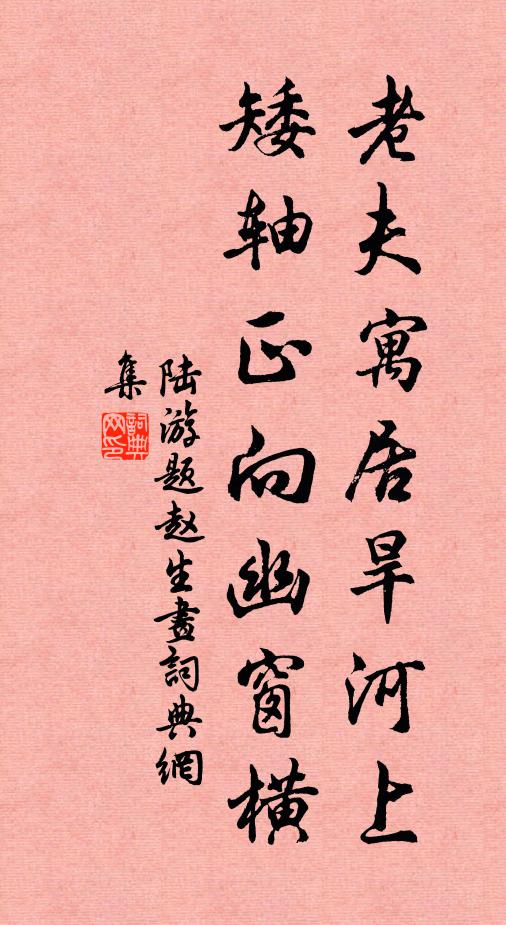 老夫寓居旱河上
矮轴正向幽窗横
陆游题赵生畫詞典網
集
詞典
网印